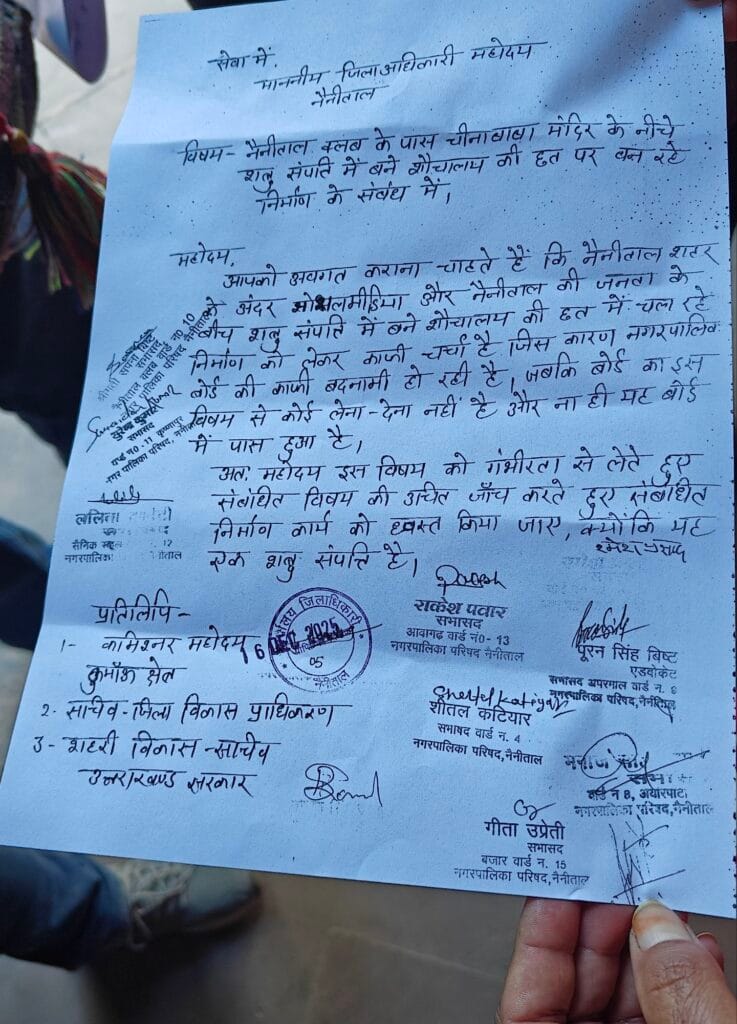 सेवा में,
माननीय जिलाअधिकारी महोदय
नैनीताल
विषय- नैनीताल क्लब के पास चीनाबाबा मंदिर के नीचे
शत्रु संपति में बने शौचालय की छत पर बन रहे
निर्माण के संबंध में।
महोदय,
आपको अवगत कराना चाहते हैं कि नैनीताल शहर
के अंदर सोशलमीडिया और नैनीताल की जनता के
बीच शत्रु संपति में बने शौचालय की छत में चला रहे
निर्माण को लेकर काफी चर्चा है जिस कारण नगरपालिका
बोर्ड की काफी बदनामी हो रही है, जबकि बोर्ड का इस
विषय से कोई लेना-देना नहीं है और ना ही यह बोर्ड
में पास हुआ है।
अतः महोदय इस विषय को गंभीरता से लेते हुए
संबंधित विषय की उचित जाँच करते हुए संबंधित
निर्माण कार्य को ध्वस्त किया जाए, क्योंकि यह
एक शत्रु संपत्ति है।
सभासद
नैनीताल क्लब वार्ड न0 10
नगर पालिका परिषद नैनीताल
सभासद
वार्ड न0. 11 कृष्णापुर
नगर पालिका परिषद, नैनीताल
ललिता
सैनिक स्कूल 12
नगरपालिका नैनीताल
रमेश प्रसाद
राकेश पवार
सभासद
आवागढ वार्ड न0- 13
नगरपालिका परिषद नैनीताल
पूरन सिंह बिष्ट
एडवोकेट
सभासद अपरमाल वार्ड न. 6
नगरपालिका परिषद, नैनीताल
Sheetal Katiyar
शीतल कटियार
सभाषद वार्ड न. 4
नगरपालिका परिषद, नैनीताल
वार्ड न 8, अयारपाटा
नगरपालिका परिषद, नैनीताल
गीता उप्रेती
सभासद
बजार वार्ड न. 15
नगरपालिका परिषद, नैनीताल
प्रतिलिपि-
1- कमिश्नर महोदय
कुमाँऊ क्षेत्र
2- साचिव-जिला विकास प्राधिकरण
3- शहरी विकास-साचिव
उत्तराखण्ड सरकार
कार्यालय जिलाधिकारी
16 DEC 2025
05
नैनीताल